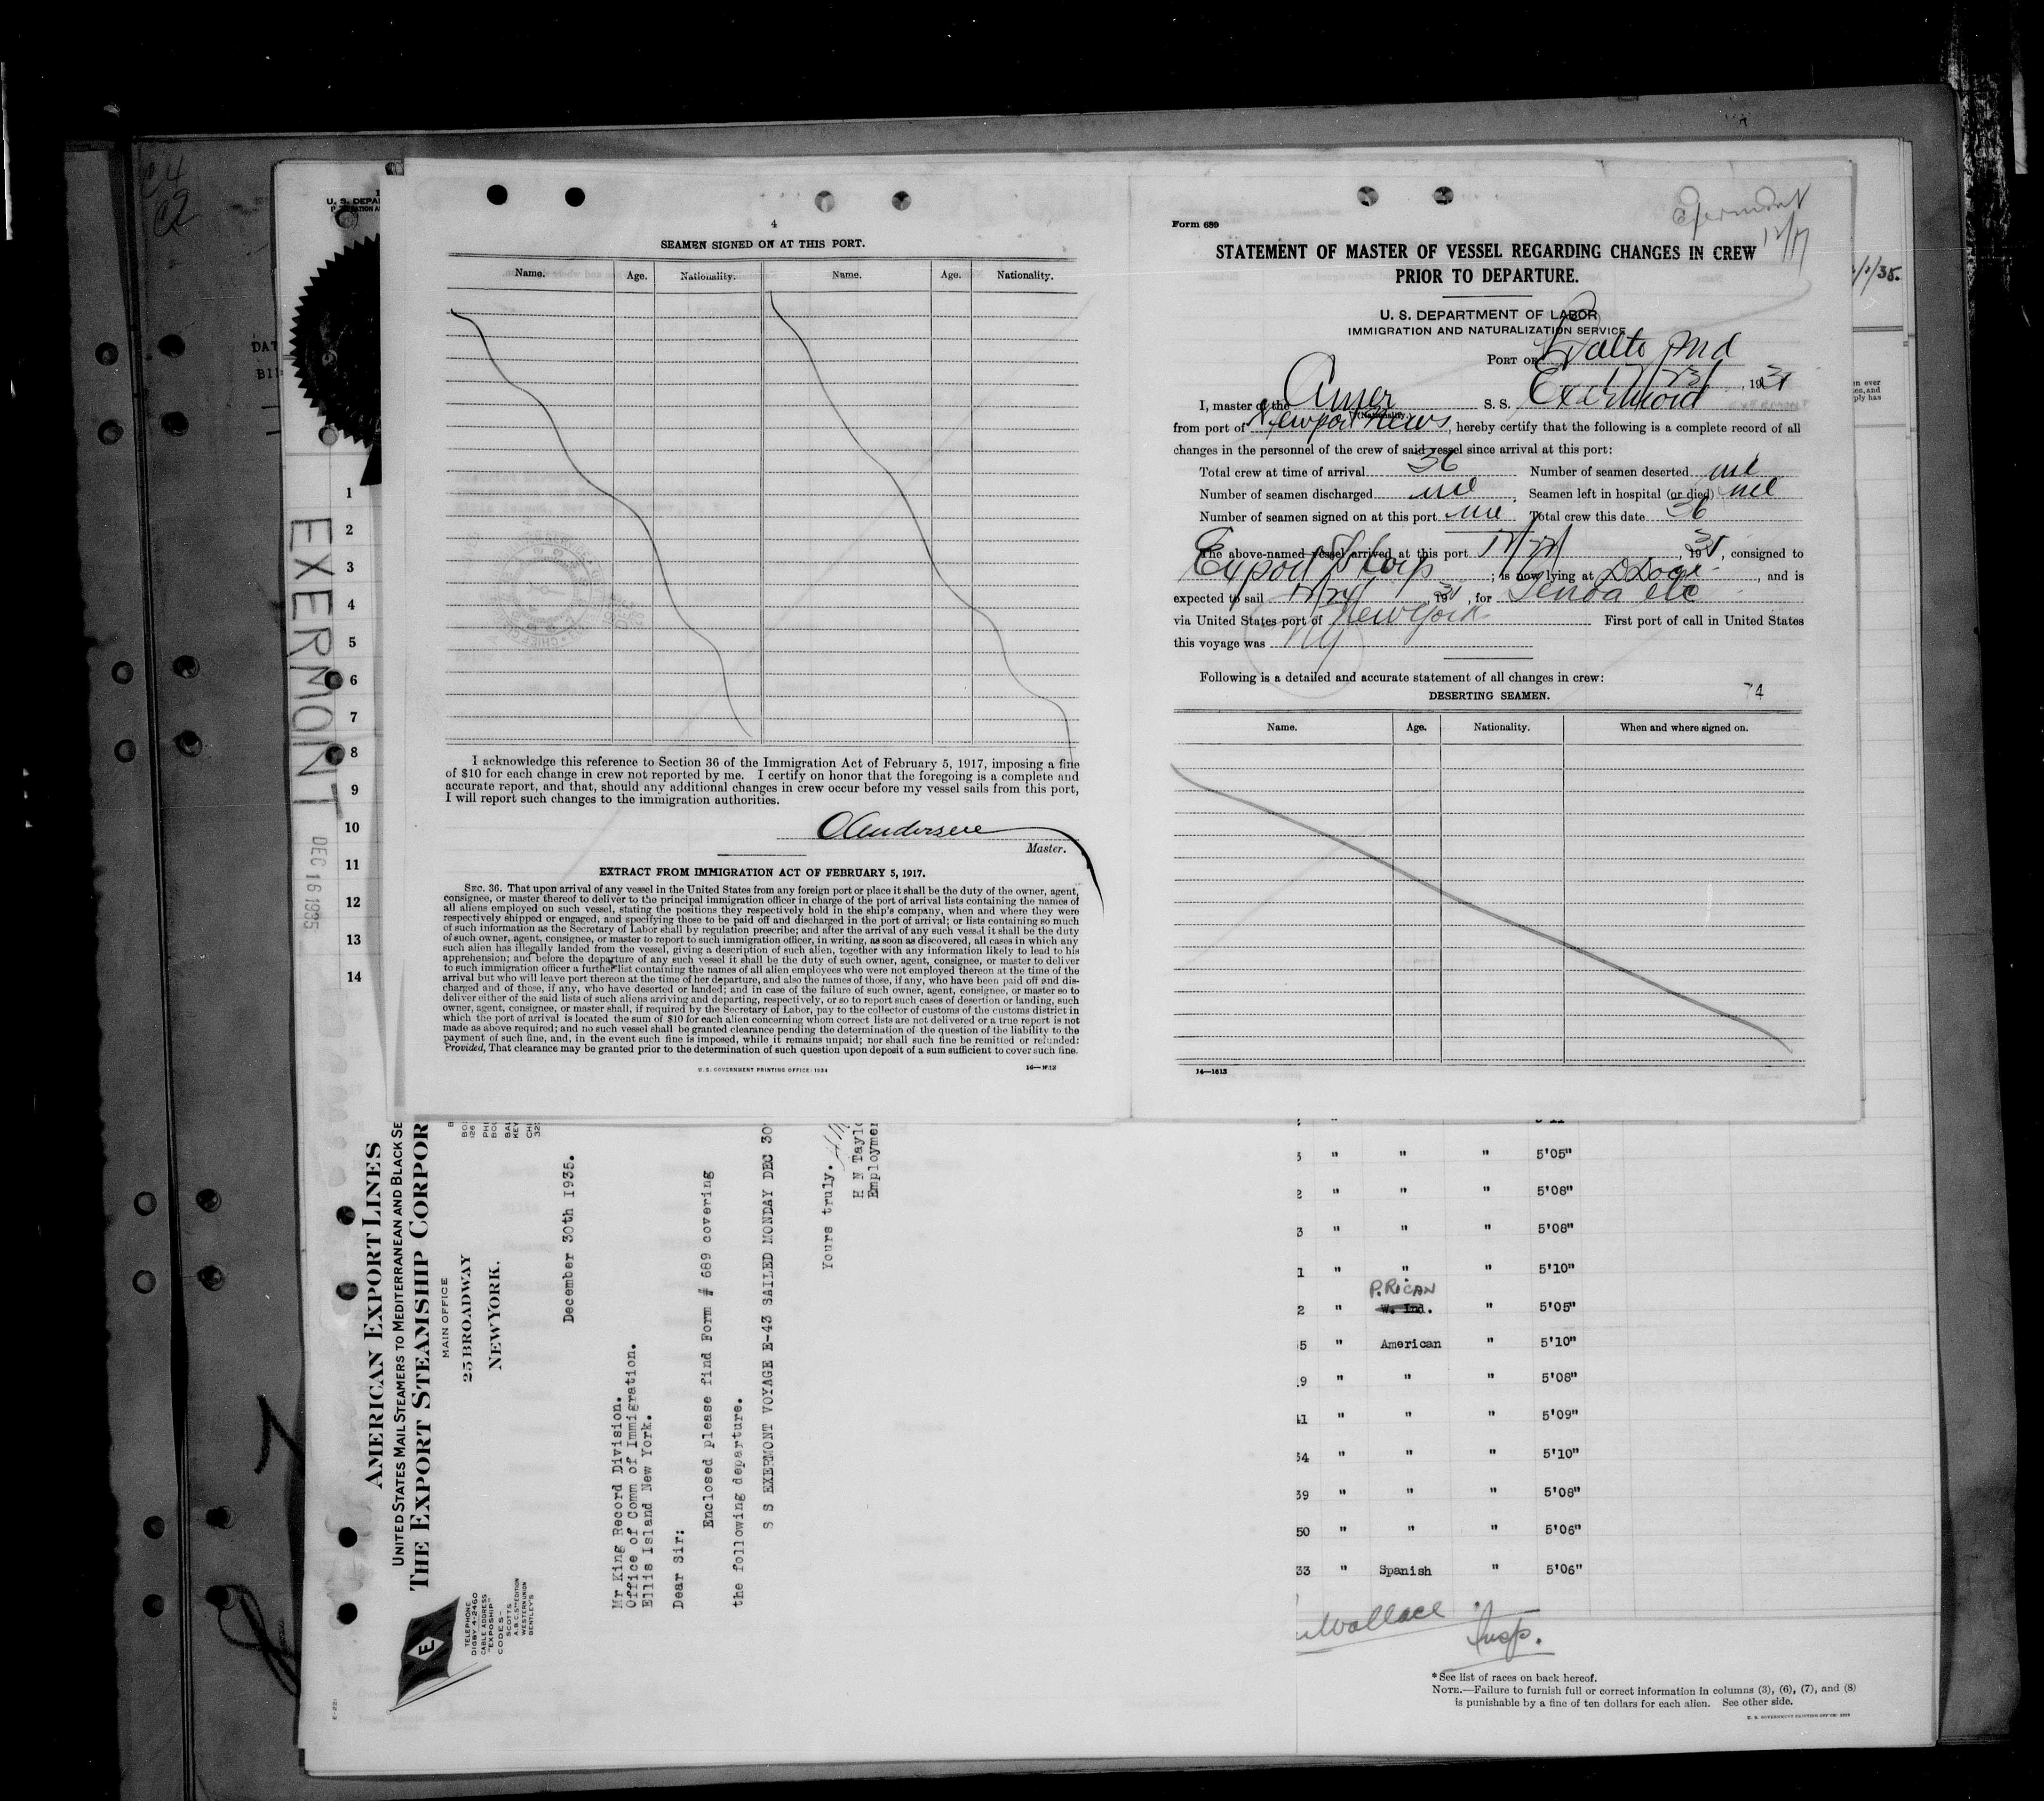 C4
C2
4
SEAMEN SIGNED ON AT THIS PORT.
Name. Age. Nationality. Name. Age. Nationality.
I acknowledge this reference to Section 36 of the Immigration Act of February 5, 1917, imposing a fine
of $10 for each change in crew not reported by me. I certify on honor that the foregoing is a complete and
accurate report, and that, should any additional changes in crew occur before my vessel sails from this port,
I will report such changes to the immigration authorities.
Master.
EXTRACT FROM IMMIGRATION ACT OF FEBRUARY 5, 1917.
SEC. 36. That upon arrival of any vessel in the United States from any foreign port or place it shall be the duty of the owner, agent,
consignee, or master thereof to deliver to the principal immigration officer in charge of the port of arrival lists containing the names of
all aliens employed on such vessel, stating the positions they respectively hold in the ship's company, when and where they were
respectively shipped or engaged, and specifying those to be paid off and discharged in the port of arrival; or lists containing so much
of such information as the Secretary of Labor shall by regulation prescribe; and after the arrival of any such vessel it shall be the duty
of such owner, agent, consignee, or master to report to such immigration officer, in writing, as soon as discovered, all cases in which any
such alien has illegally landed from the vessel, giving a description of such alien, together with any information likely to lead to his
apprehension; and before the departure of any such vessel it shall be the duty of such owner, agent, consignee, or master to deliver
to such immigration officer a further list containing the names of all alien employees who were not employed thereon at the time of the
arrival but who will leave port thereon at the time of her departure, and also the names of those, if any, who have been paid off and dis-
charged and of those, if any, who have deserted or landed; and in case of the failure of such owner, agent, consignee, or master so to
deliver either of the said lists of such aliens arriving and departing, respectively, or so to report such cases of desertion or landing, such
owner, agent, consignee, or master shall, if required by the Secretary of Labor, pay to the collector of customs of the customs district in
which the port of arrival is located the sum of $10 for each alien concerning whom correct lists are not delivered or a true report is not
made as above required; and no such vessel shall be granted clearance pending the determination of the question of the liability to the
payment of such fine, and, in the event such fine is imposed, while it remains unpaid; nor shall such fine be remitted or refunded:
Provided, That clearance may be granted prior to the determination of such question upon deposit of a sum sufficient to cover such fine.
U. S. GOVERNMENT PRINTING OFFICE: 1934
Form 689
Exermont
12/17
STATEMENT OF MASTER OF VESSEL REGARDING CHANGES IN CREW
PRIOR TO DEPARTURE.
U. S. DEPARTMENT OF LABOR
IMMIGRATION AND NATURALIZATION SERVICE
PORT OF Balto Md
12/23/, 193
I, master of the Amer S. S. Exermont
(Nationality)
from port of Newport News, hereby certify that the following is a complete record of all
changes in the personnel of the crew of said vessel since arrival at this port:
Total crew at time of arrival 36 Number of seamen deserted nil
Number of seamen discharged nil, Seamen left in hospital (or died) nil
Number of seamen signed on at this port nil Total crew this date 36
The above-named vessel arrived at this port 12/22/, 193, consigned to
Export SS Corp; is now lying at, and is
expected to sail 12/24/, 193, for Genoa etc
via United States port of New York First port of call in United States
this voyage was NY
Following is a detailed and accurate statement of all changes in crew:
74
DESERTING SEAMEN.
Name. Age. Nationality. When and where signed on.
14—1613
EXERMONT
DEC 16 1935
1
2
3
4
5
6
7
8
9
10
11
12
13
14
AMERICAN EXPORT LINES
UNITED STATES MAIL STEAMERS TO MEDITERRANEAN AND BLACK SE
THE EXPORT STEAMSHIP CORPOR
MAIN OFFICE
25 BROADWAY
NEW YORK.
E
TELEPHONE
DIGBY 4-2460
CABLE ADDRESS
"EXPOSHIP"
CODES-
SCOTTS
A.B.C. 5TH EDITION
WESTERN UNION
BENTLEYS
December 30th 1935.
Mr King Record Division.
Office of Comm of Immigration.
Ellis Island New York.
Dear Sir:
Enclosed please find Form # 689 covering
the following departure.
S S EXERMONT VOYAGE E-43 SAILED MONDAY DEC 30
Yours truly.
H N Taylo
Employmen
3 " " " 5'05"
2 " " " 5'08"
3 " " " 5'08"
1 " " " 5'10"
P. RICAN
2 " W. Ind. " 5'05"
5 " American " 5'10"
9 " " " 5'08"
41 " " " 5'09"
54 " " " 5'10"
39 " " " 5'08"
50 " " " 5'06"
33 " Spanish " 5'06"
Wallace
Insp.
*See list of races on back hereof.
NOTE.—Failure to furnish full or correct information in columns (3), (6), (7), and (8)
is punishable by a fine of ten dollars for each alien. See other side.